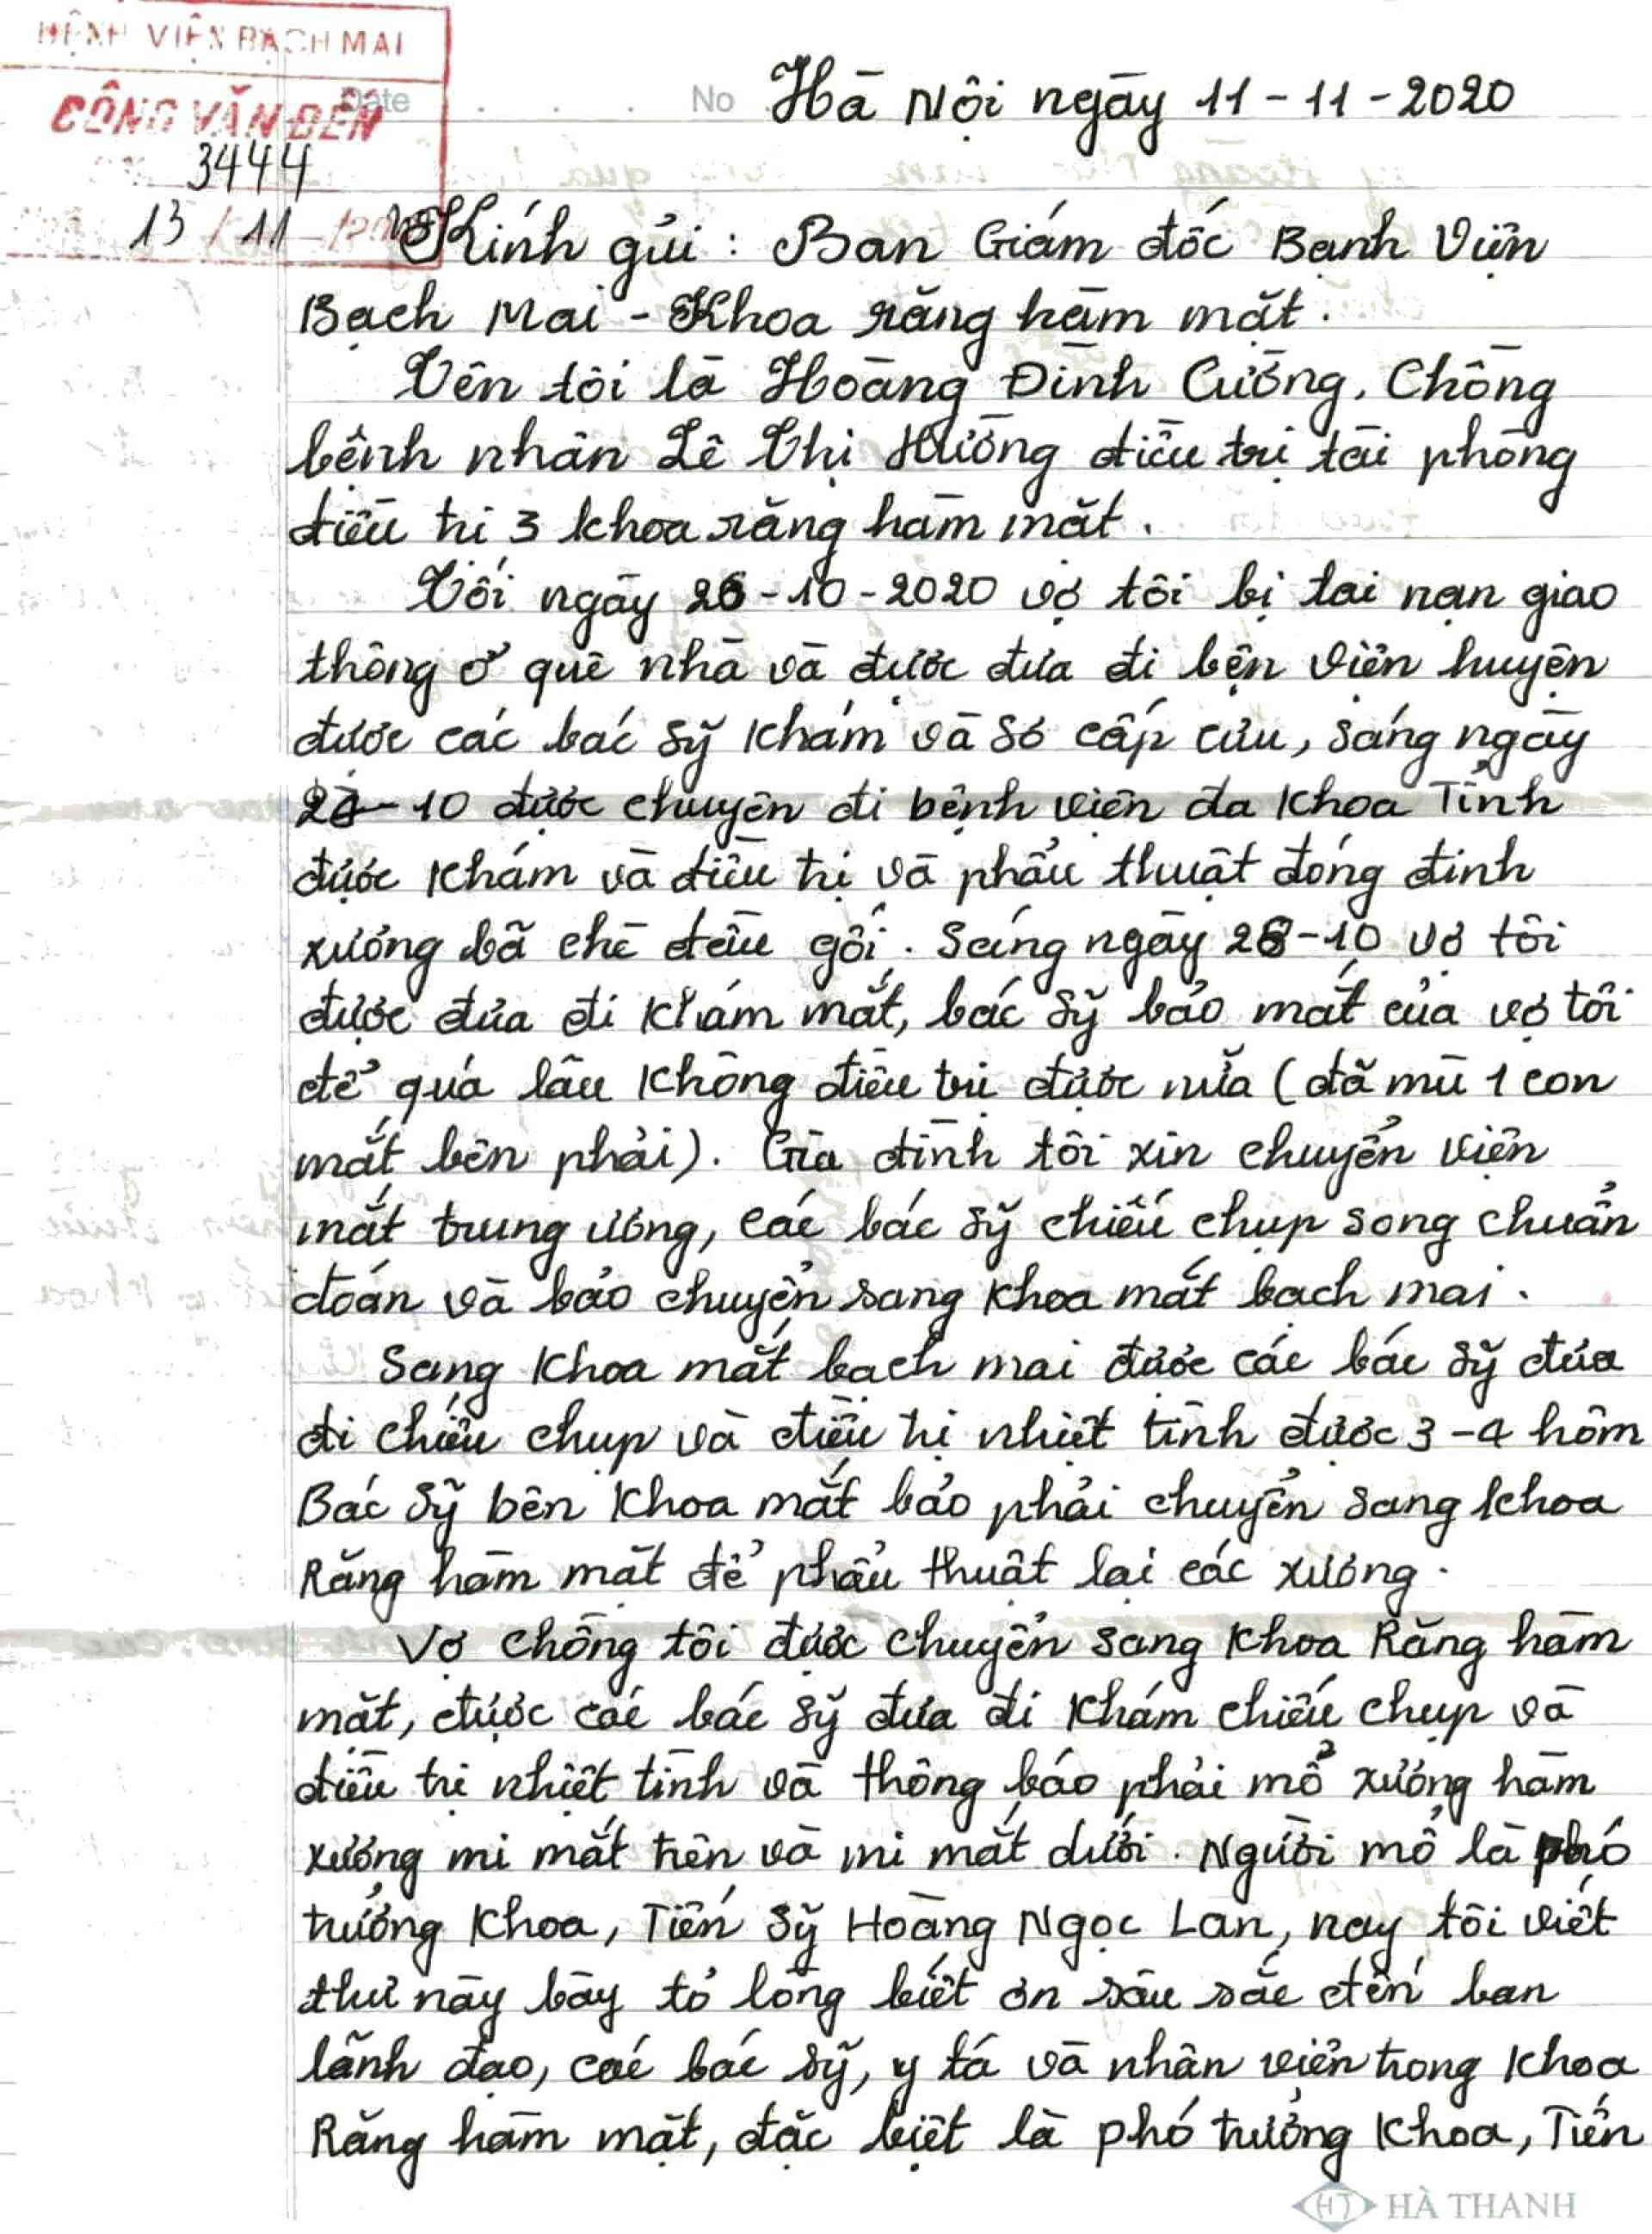 BỆNH VIỆN BẠCH MAI
CÔNG VĂN ĐẾN
Date No Hà Nội ngày 11-11-2020
3444
13/11
Kính gửi: Ban Giám đốc Bệnh Viện
Bạch Mai - Khoa răng hàm mặt.
Tên tôi là Hoàng Đình Cường, Chồng
bệnh nhân Lê Thị Hường điều trị tại phòng
điều trị 3 khoa răng hàm mặt.
Tối ngày 26-10-2020 vợ tôi bị tai nạn giao
thông ở quê nhà và được đưa đi bện viện huyện
được các bác sỹ khám và sơ cấp cứu, sáng ngày
-10 được chuyên đi bệnh viện đa khoa Tỉnh
được khám và điều trị và phẩu thuật đóng đinh
xương bã chè đầu gối. Sáng ngày 28-10 vợ tôi
được đưa đi khám mắt, bác sỹ bảo mắt của vợ tôi
để quá lâu không điều trị được nữa (đã mù 1 con
mắt bên phải). Gia đình tôi xin chuyển viện
mắt trung ương, các bác sỹ chiếu chụp song chuẩn
đoán và bảo chuyển sang khoa mắt bạch mai.
Sang khoa mắt bạch mai được các bác sỹ đưa
đi chiếu chụp và điều trị nhiệt tình được 3-4 hôm
Bác sỹ bên khoa mắt bảo phải chuyển sang khoa
Răng hàm mặt để phẩu thuật lại các xương.
Vợ chồng tôi được chuyển sang khoa Răng hàm
mặt, được các bác sỹ đưa đi khám chiếu chụp và
điều trị nhiệt tình và thông báo phải mổ xương hàm
xương mi mắt trên và mi mắt dưới. Người mổ là phó
trưởng khoa, Tiến sỹ Hoàng Ngọc Lan, nay tôi viết
thư này bày tỏ lòng biết ơn sâu sắc đến ban
lãnh đạo, các bác sỹ, y tá và nhân viên trong khoa
Răng hàm mặt, đặc biệt là phó trưởng khoa, Tiến
HT HÀ THANH